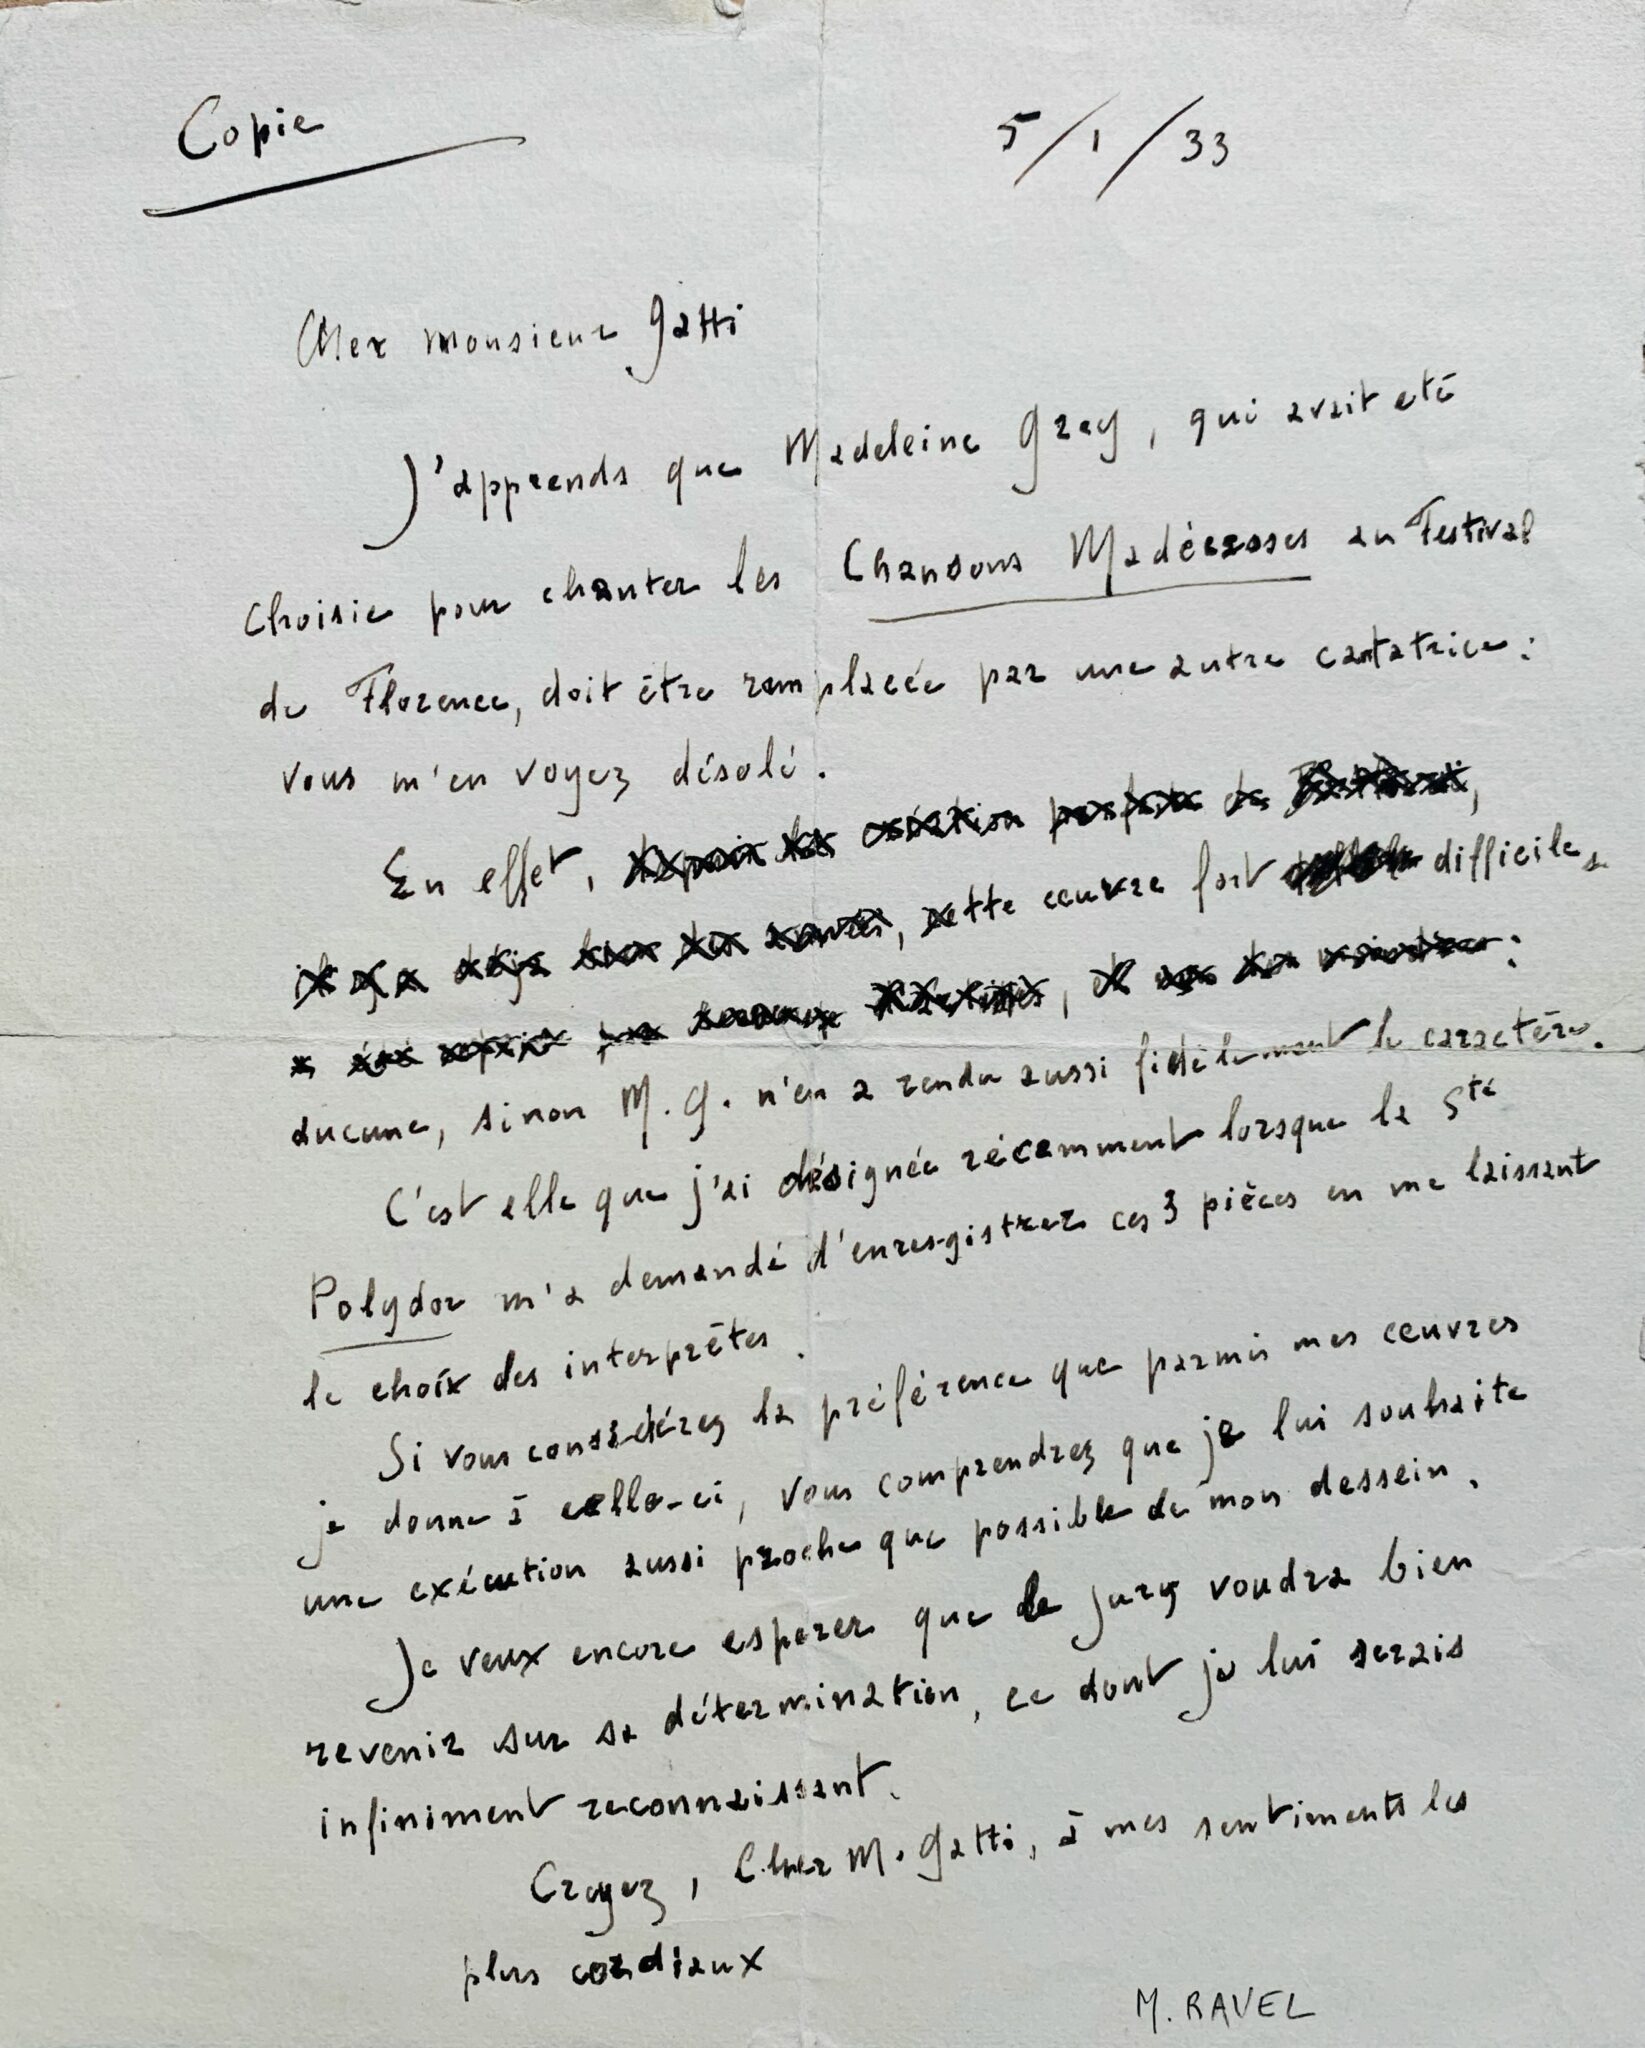 Copie
5/1/33
Cher Monsieur Gatti
J'apprends que Madeleine Grey, qui avait eté
choisie pour chanter les Chansons Madécasses au Festival
de Florence, doit être remplacée par une autre cantatrice :
vous m'en voyez désolé.
En effet, création parfaite de
il y a déjà bien des années, cette œuvre fort difficile,
a été reprise par :
aucune, sinon M. G. n'en a rendu aussi fidèlement le caractère.
C'est elle que j'ai désignée récemment lorsque la Sté
Polydor m'a demandé d'enregistrer ces 3 pièces en me laissant
le choix des interprêtes.
Si vous considérez la préférence que parmis mes œuvres
je donne à celle-ci, vous comprendrez que je lui souhaite
une exécution aussi proche que possible de mon dessein.
Je veux encore esperer que le jury voudra bien
revenir sur sa détermination, ce dont je lui serais
infiniment reconnaissant.
Croyez, Cher M. Gatti, à mes sentiments les
plus cordiaux
M. RAVEL